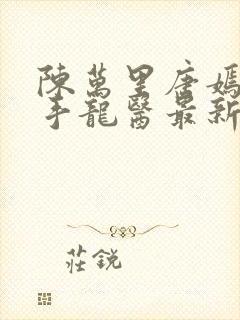 陳萬里唐嫣
手龍醫最新
莊銳